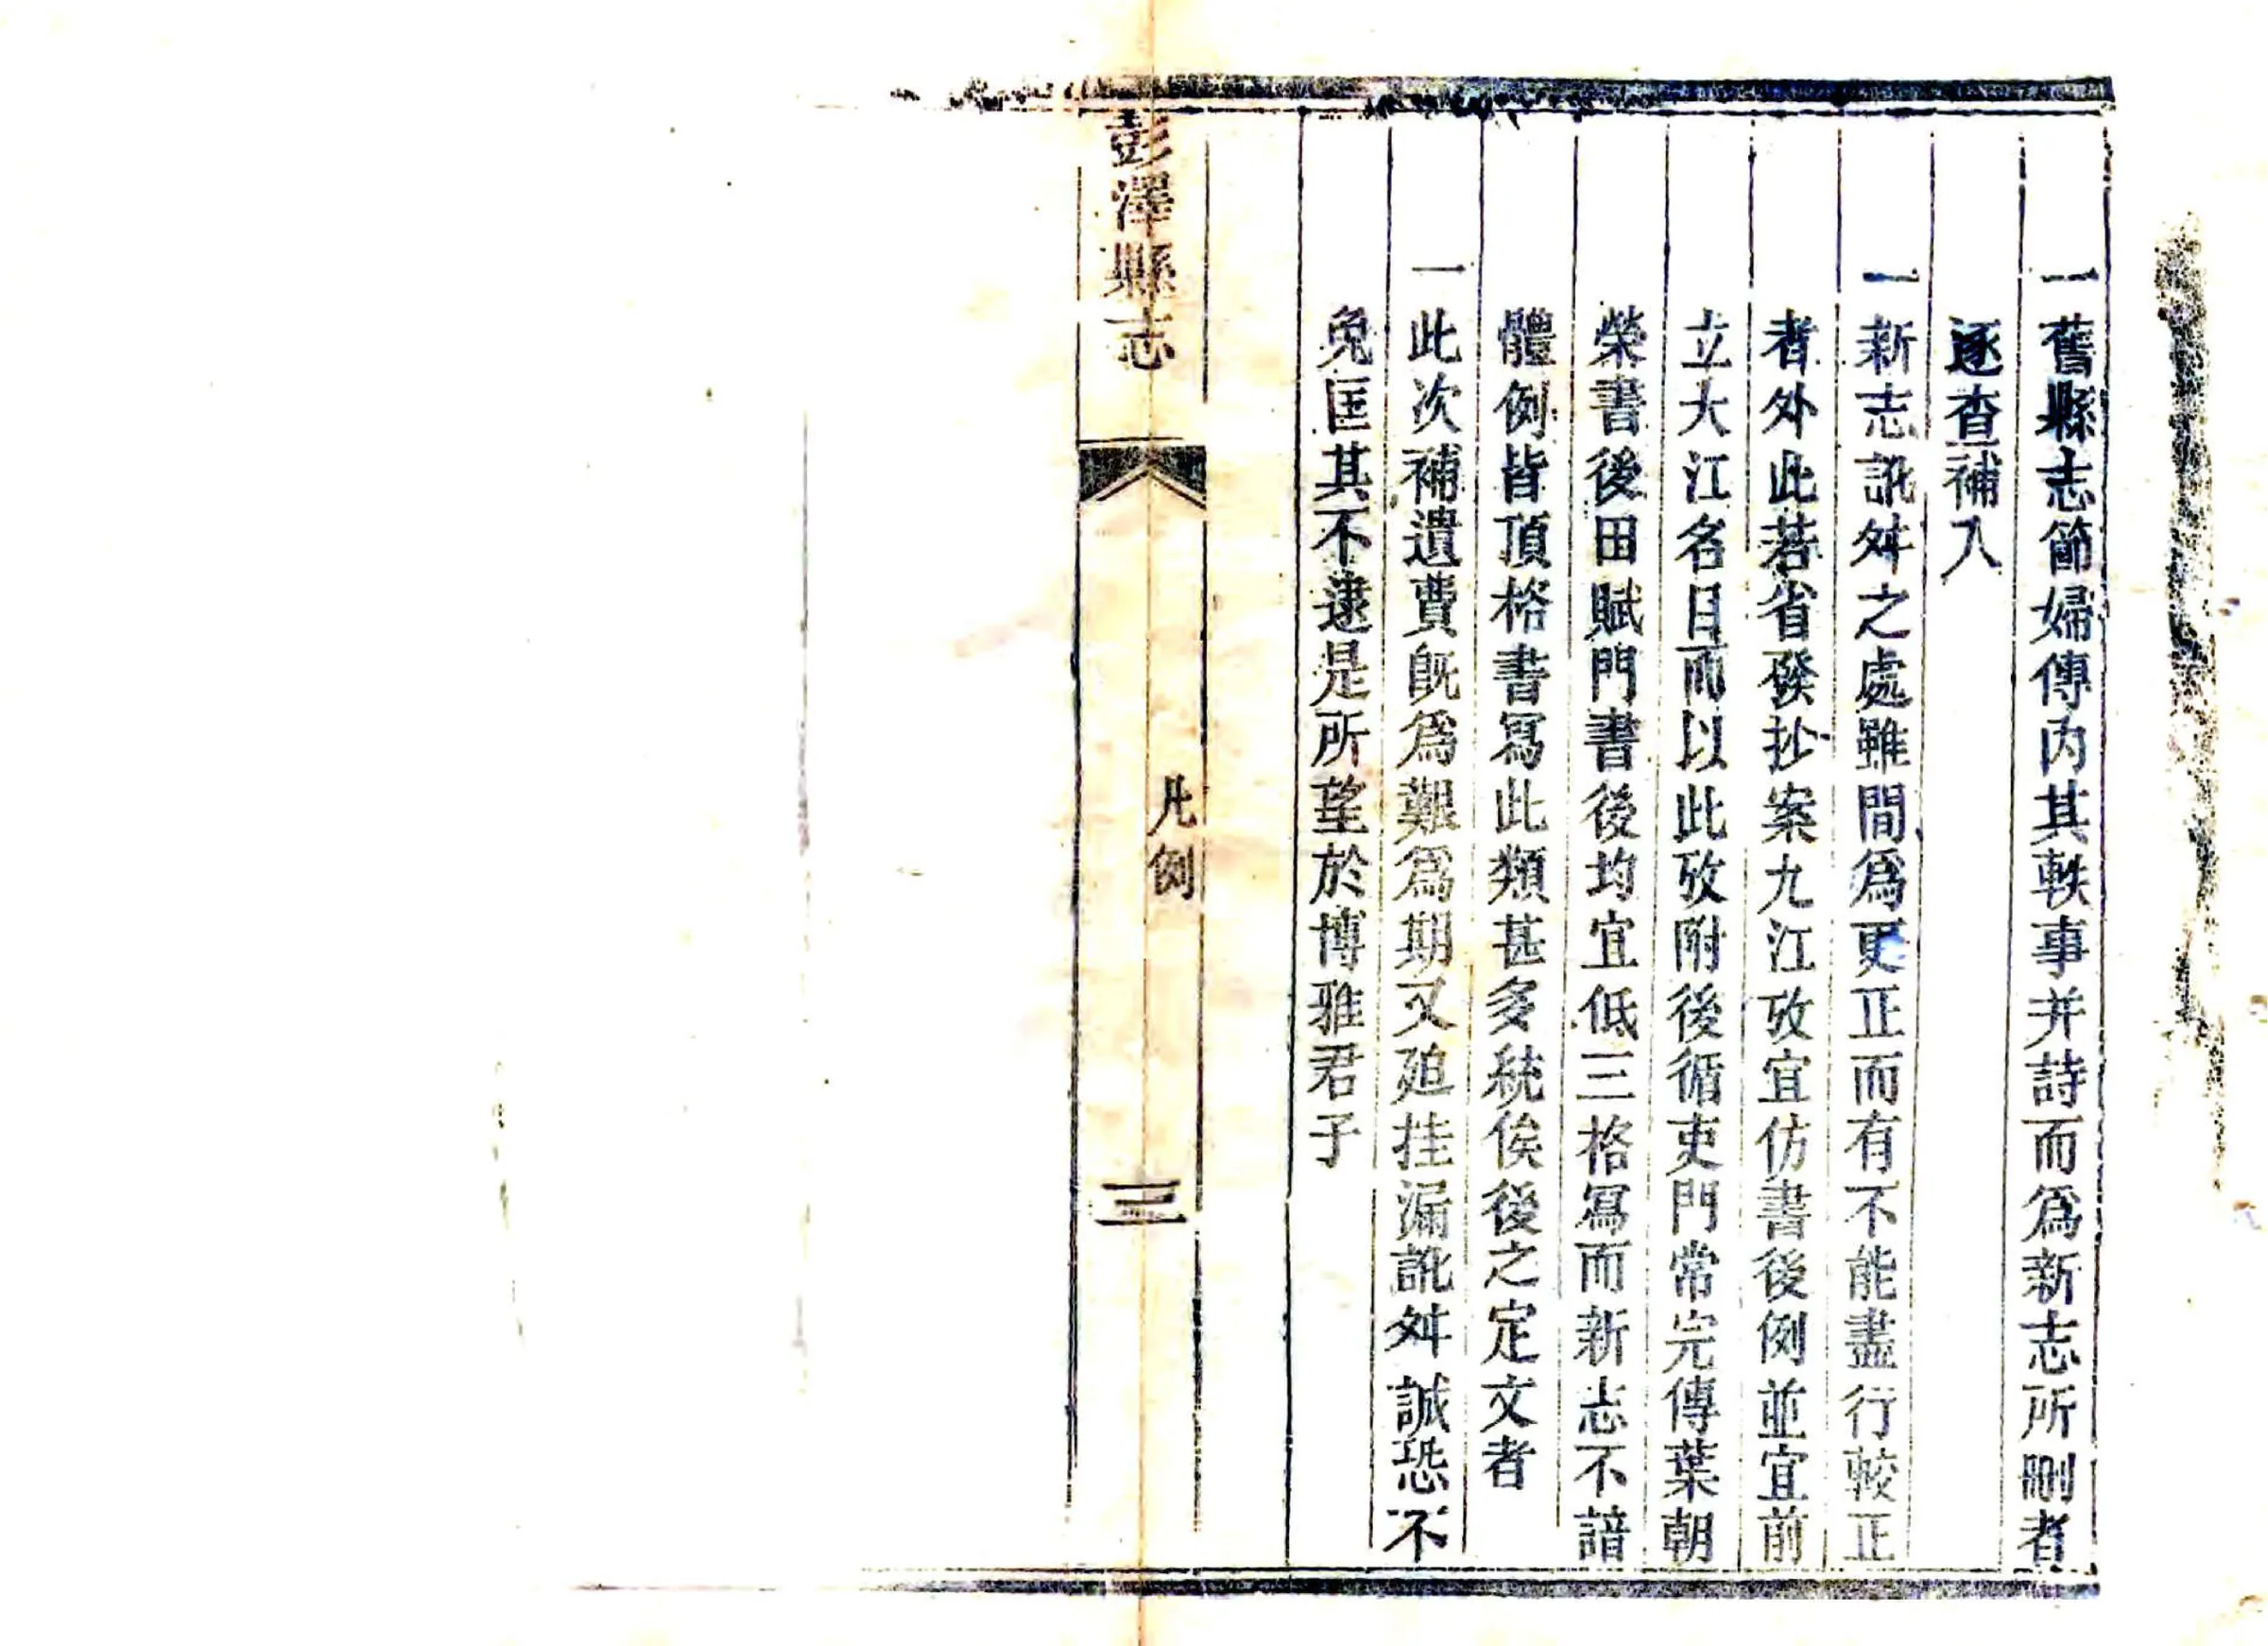 一舊縣志節婦傳內其軼事并詩而爲新志所刪者
逐查補入
一新志訛舛之處雖間爲更正而有不能盡行較正
者外此若省發抄案九江攷宜仿書後例並宜前
立大江名目而以此攷附後循吏門常完傳葉朝
榮書後田賦門書後均宜低三格寫而新志不諳
體例皆頂格書寫此類甚多統俟後之定文者
一此次補遺費旣爲艱爲期又廹挂漏訛舛誠恐不
免匡其不逮是所望於博雅君子
彭澤縣志
凡例
三